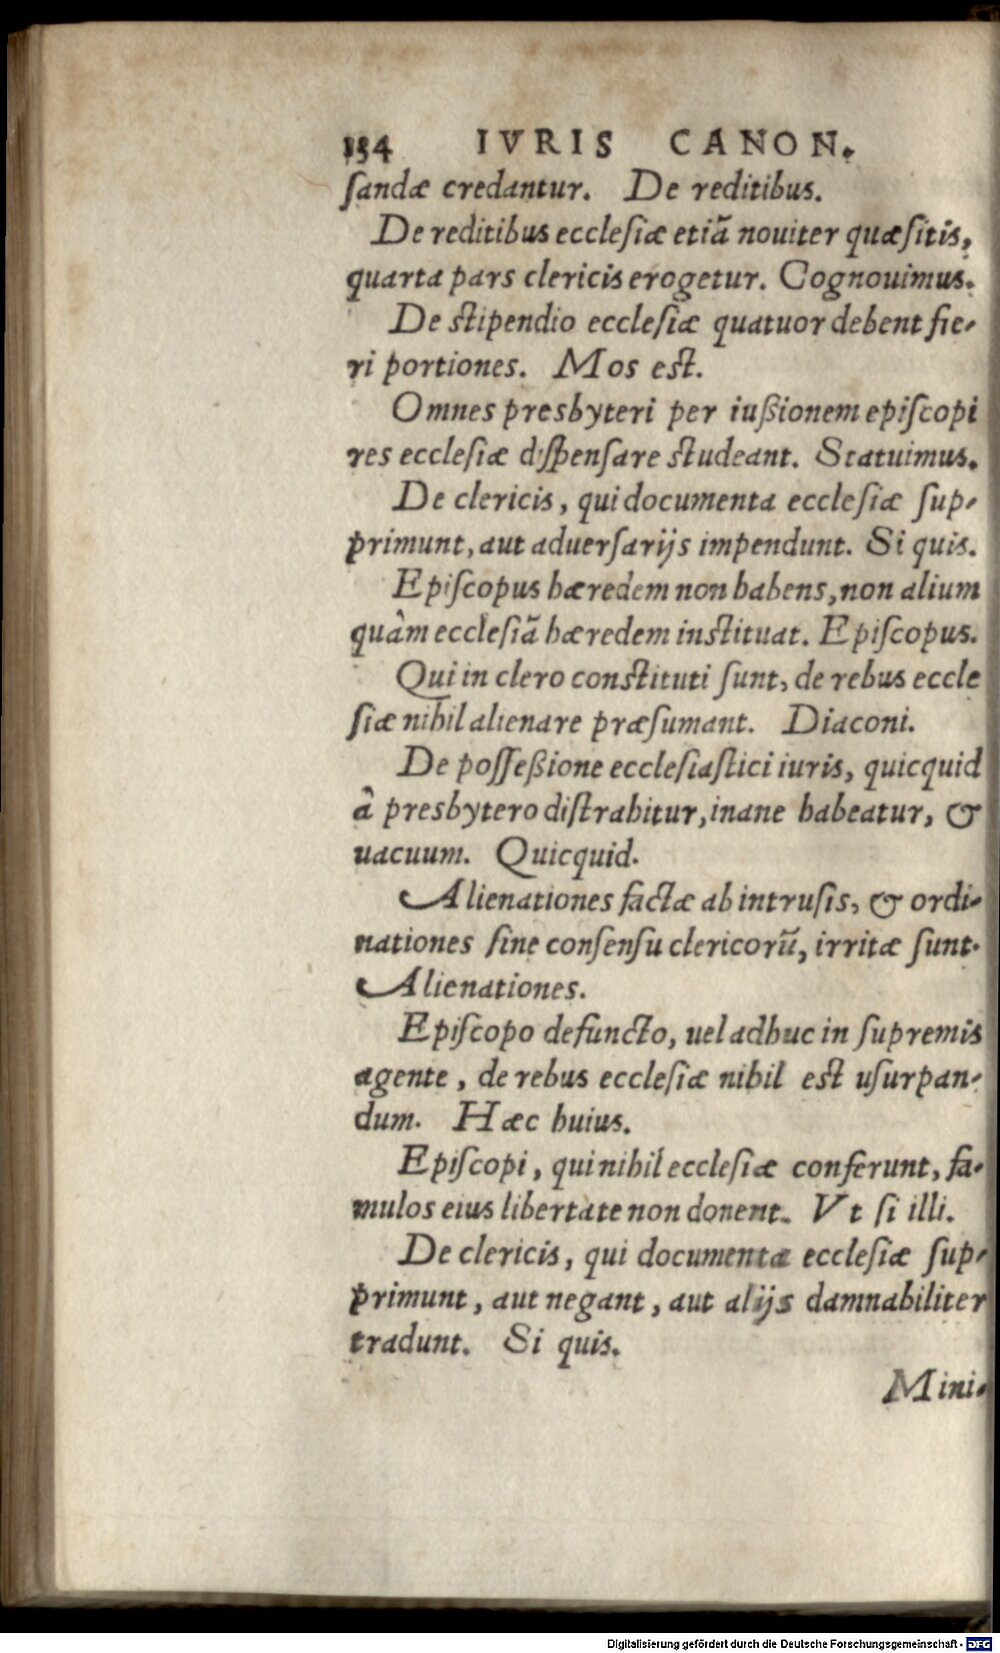 154 IVRIS CANON.
ſandæ credantur. De reditibus.
De reditibus eccleſiæ etiã nouiter quæſitis,
quarta pars clericis erogetur. Cognouimus.
De ſtipendio eccleſiæ quatuor debent fie-
ri portiones. Mos eſt.
Omnes presbyteri per iußionem epiſcopi
res eccleſiæ diſpenſare ſtudeant. Statuimus.
De clericis, qui documenta eccleſiæ ſup-
primunt, aut aduerſarijs impendunt. Si quis.
Epiſcopus hæredem non habens, non alium
quàm eccleſiã hæredem inſtituat. Epiſcopus.
Qui in clero conſtituti ſunt, de rebus eccle
ſiæ nihil alienare præſumant. Diaconi.
De poſſeßione eccleſiaſtici iuris, quicquid
â presbytero diſtrahitur, inane habeatur, &
uacuum. Quicquid.
Alienationes factæ ab intruſis, & ordi-
nationes ſine conſenſu clericorũ, irritæ ſunt.
Alienationes.
Epiſcopo defuncto, uel adhuc in ſupremis
agente, de rebus eccleſiæ nihil eſt uſurpan-
dum. Hæc huius.
Epiſcopi, qui nihil eccleſiæ conferunt, fa-
mulos eius libertate non donent. Vt ſi illi.
De clericis, qui documenta eccleſiæ ſup-
primunt, aut negant, aut alijs damnabiliter
tradunt. Si quis.
Mini-
Digitalisierung gefördert durch die Deutsche Forschungsgemeinschaft - DFG